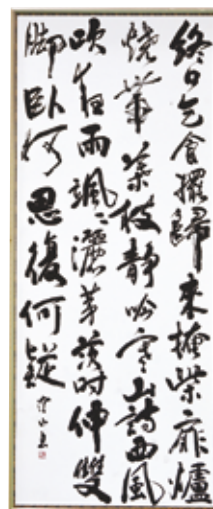 終日乞食罷歸來掩柴扉爐
燒帶葉枝靜吟寒山詩西風
吹夜雨颯々灑茅茨時伸雙
脚臥何思復何疑